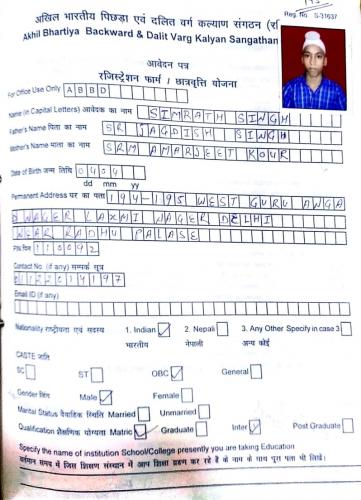 अखिल भारतीय पिछड़ा एवं दलित वर्ग कल्याण संगठन
Reg. No. S-31637
Akhil Bhartiya Backward & Dalit Varg Kalyan Sangathan
आवेदन पत्र
रजिस्ट्रेशन फार्म / छात्रवृत्ति योजना
For Office Use Only ABBD
Name (in Capital Letters) आवेदक का नाम SIMRATH SINGH
Father's Name पिता का नाम SR JAGDISH SINGH
Mother's Name माता का नाम SRM AMARJEET KOUR
Date of Birth जन्म तिथि 0404
dd mm yy
Permanent Address घर का पता 194-195 WEST GURU ANGA
D NAGER LAXMI NAGER DELHI
NEAR RADHU PALASE
PIN पिन 110092
Contact No. (if any) सम्पर्क सूत्र
01122014197
Email ID (if any)
Nationality राष्ट्रीयता एवं सदस्य 1. Indian 2. Nepali 3. Any Other Specify in case 3
भारतीय नेपाली अन्य कोई
CASTE जाति
SC ST OBC General
Gender लिंग Male Female
Marital Status वैवाहिक स्थिति Married Unmarried
Qualification शैक्षणिक योग्यता Matric Graduate Inter Post Graduate
Specify the name of institution School/College presently you are taking Education
वर्तमान समय में जिस शिक्षण संस्थान में आप शिक्षा ग्रहण कर रहे हैं के नाम के साथ पूरा पता भी लिखें।